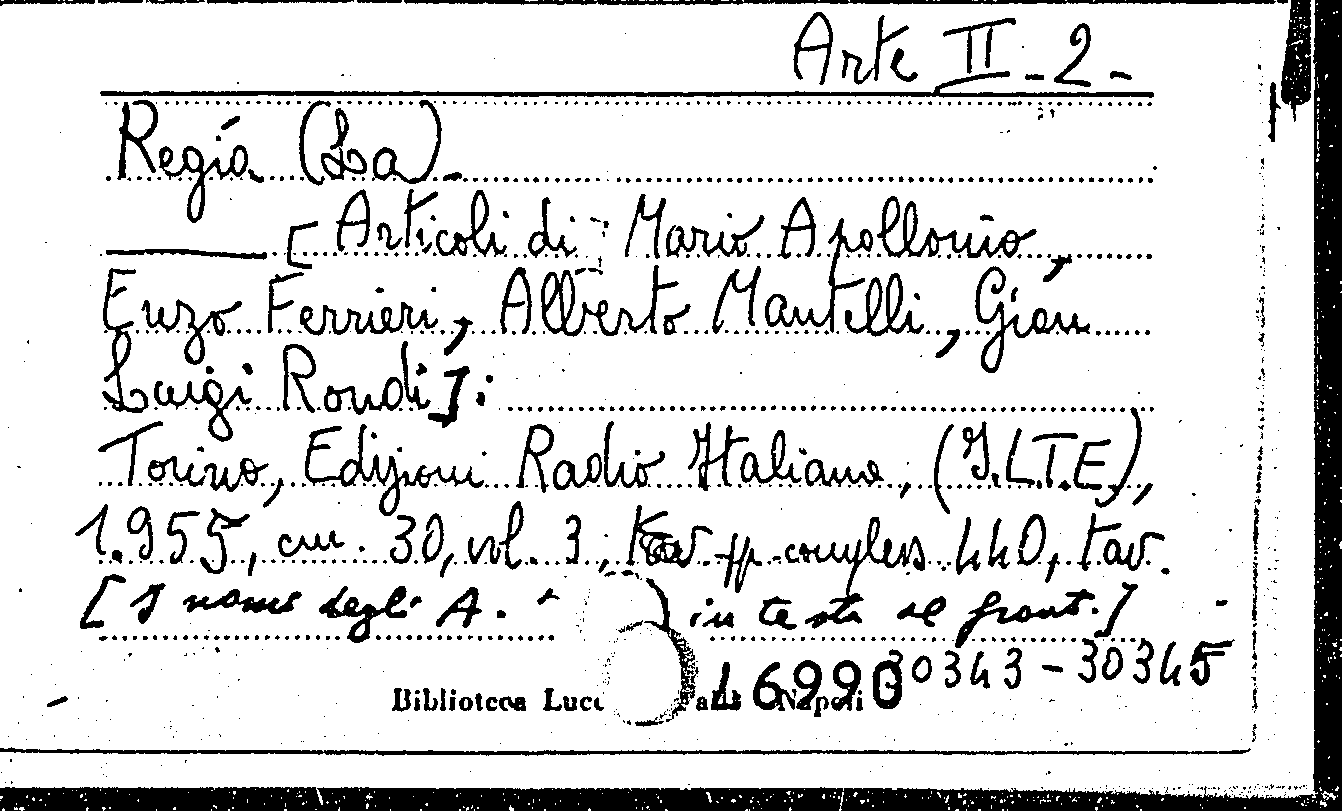 Arte II-2-
Regía (La).
[Articoli di Mario Apollonio,
Enzo Ferrieri, Alberto Mantelli, Gian
Luigi Rondi]:
Torino, Edizioni Radio Italiana, (I.L.T.E.),
1.955, cm. 30, vol. 3, pp. compless. 440, tav.
[I nomi degli A. in testa al front.]
30343-30345
Biblioteca Lucc Napoli